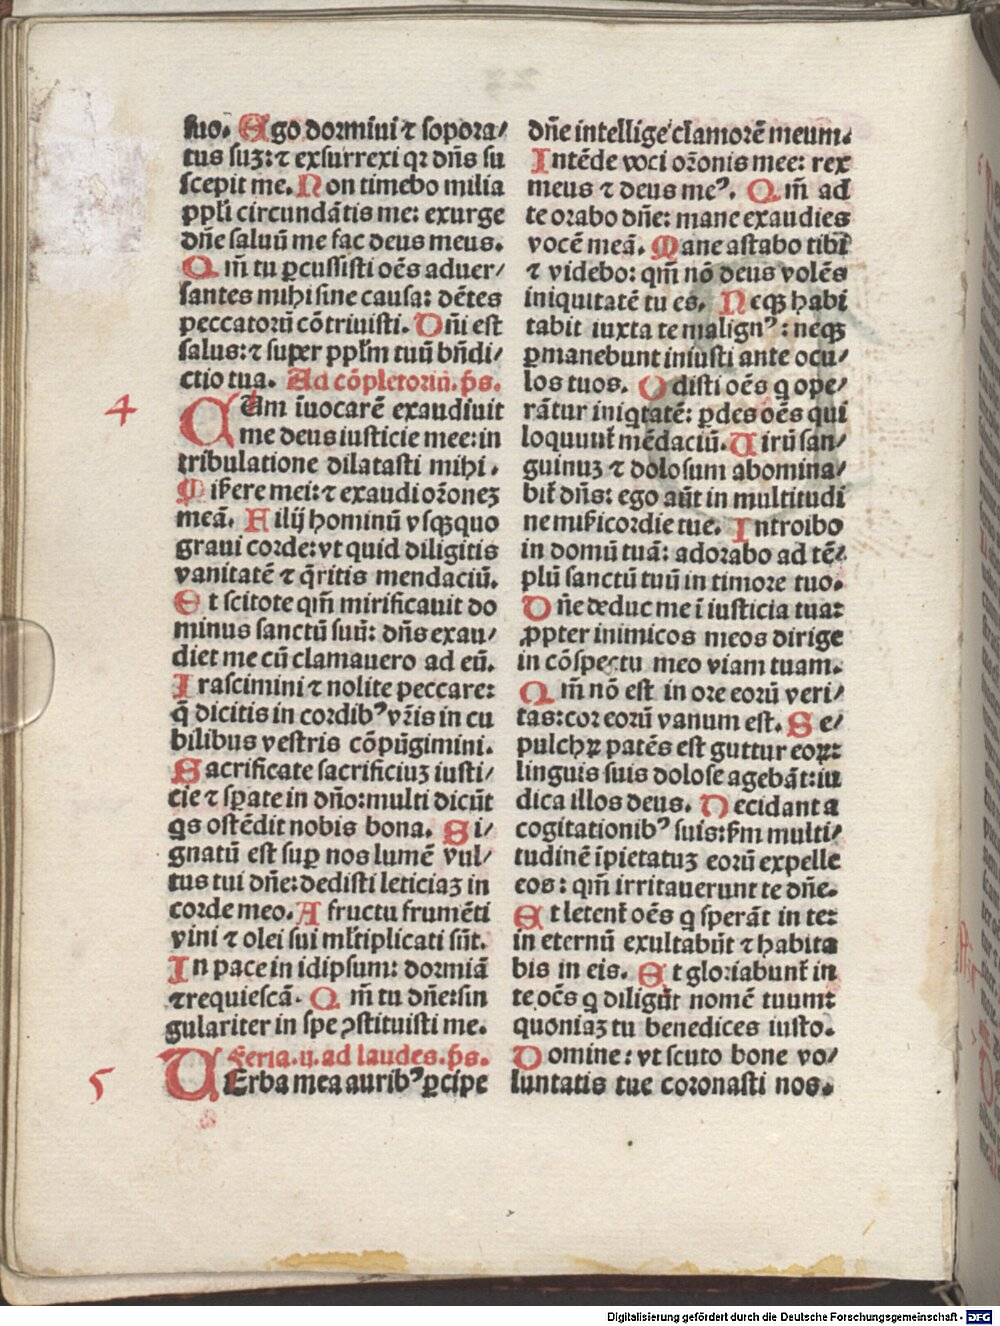 suo. Ego dormiui ⁊ sopora/
tus suꝫ: ⁊ exsurrexi qꝛ dn̄s su
scepit me. Non timebo milia
ppl̄i circundātis me: exurge
dn̄e saluū me fac deus meus.
Qm̄ tu ꝑcussisti oēs aduer/
santes mihi sine causa: dētes
peccatorū cōtriuisti. Dn̄i est
salus: ⁊ super ppl̄m tuū bn̄di/
ctio tua. Ad cōpletoriū. p̄s.
4
CUm īuocarē exaudiuit
me deus iusticie mee: in
tribulatione dilatasti mihi.
Miẜere mei: ⁊ exaudi oꝛ̄oneꝫ
meā. Filij hominū vsqꝫquo
graui corde: vt quid diligitis
vanitatē ⁊ q̄ritis mendaciū.
Et scitote qm̄ mirificauit do
minus sanctū suū: dn̄s exau/
diet me cū clamauero ad eū.
Irascimini ⁊ nolite peccare:
q̄ dicitis in cordibꝰ vr̄is in cu
bilibus vestris cōpūgimini.
Sacrificate sacrificiuꝫ iusti/
cie ⁊ sꝑate in dn̄o: multi dicūt
qs ostēdit nobis bona. Si/
gnatū est suꝑ nos lumē vul/
tus tui dn̄e: dedisti leticiaꝫ in
corde meo. A fructu frumēti
vini ⁊ olei sui ml̄tiplicati sūt.
In pace in idipsum: dormiā
⁊ requiescā. Qm̄ tu dn̄e: sin
gulariter in spe ꝯstituisti me.
Feria. ij. ad laudes. p̄s.
5
UErba mea auribꝰ ꝑcipe
dn̄e intellige clamorē meum.
Intēde voci oꝛ̄onis mee: rex
meus ⁊ deus meꝰ. Qm̄ ad
te orabo dn̄e: mane exaudies
vocē meā. Mane astabo tibi
⁊ videbo: qm̄ nō deus volēs
iniquitatē tu es. Neqꝫ habi
tabit iuxta te malignꝰ: neqꝫ
ꝑmanebunt iniusti ante ocu/
los tuos. Odisti oēs q ope/
rātur iniqtatē: ꝑdes oēs qui
loquunt᷑ mēdaciū. Uirū san/
guinuꝫ ⁊ dolosum abomina/
bit᷑ dn̄s: ego aūt in multitudi
ne miẜicordie tue. Introibo
in domū tuā: adorabo ad tē/
plū sanctū tuū in timore tuo.
Dn̄e deduc me ī iusticia tua:
ꝓpter inimicos meos dirige
in cōspectu meo viam tuam.
Qm̄ nō est in ore eorū veri/
tas: cor eorū vanum est. Se/
pulchꝝ patēs est guttur eoꝝ:
linguis suis dolose agebāt: iu
dica illos deus. Decidant a
cogitationibꝰ suis: ẜm multi/
tudinē īpietatuꝫ eorū expelle
eos: qm̄ irritauerunt te dn̄e.
Et letent᷑ oēs q sperāt in te:
in eternū exultabūt ⁊ habita
bis in eis. Et gloriabunt᷑ in
te oēs q diligūt nomē tuum:
quoniaꝫ tu benedices iusto.
Domine: vt scuto bone vo/
luntatis tue coronasti nos.
Digitalisierung gefördert durch die Deutsche Forschungsgemeinschaft - DFG